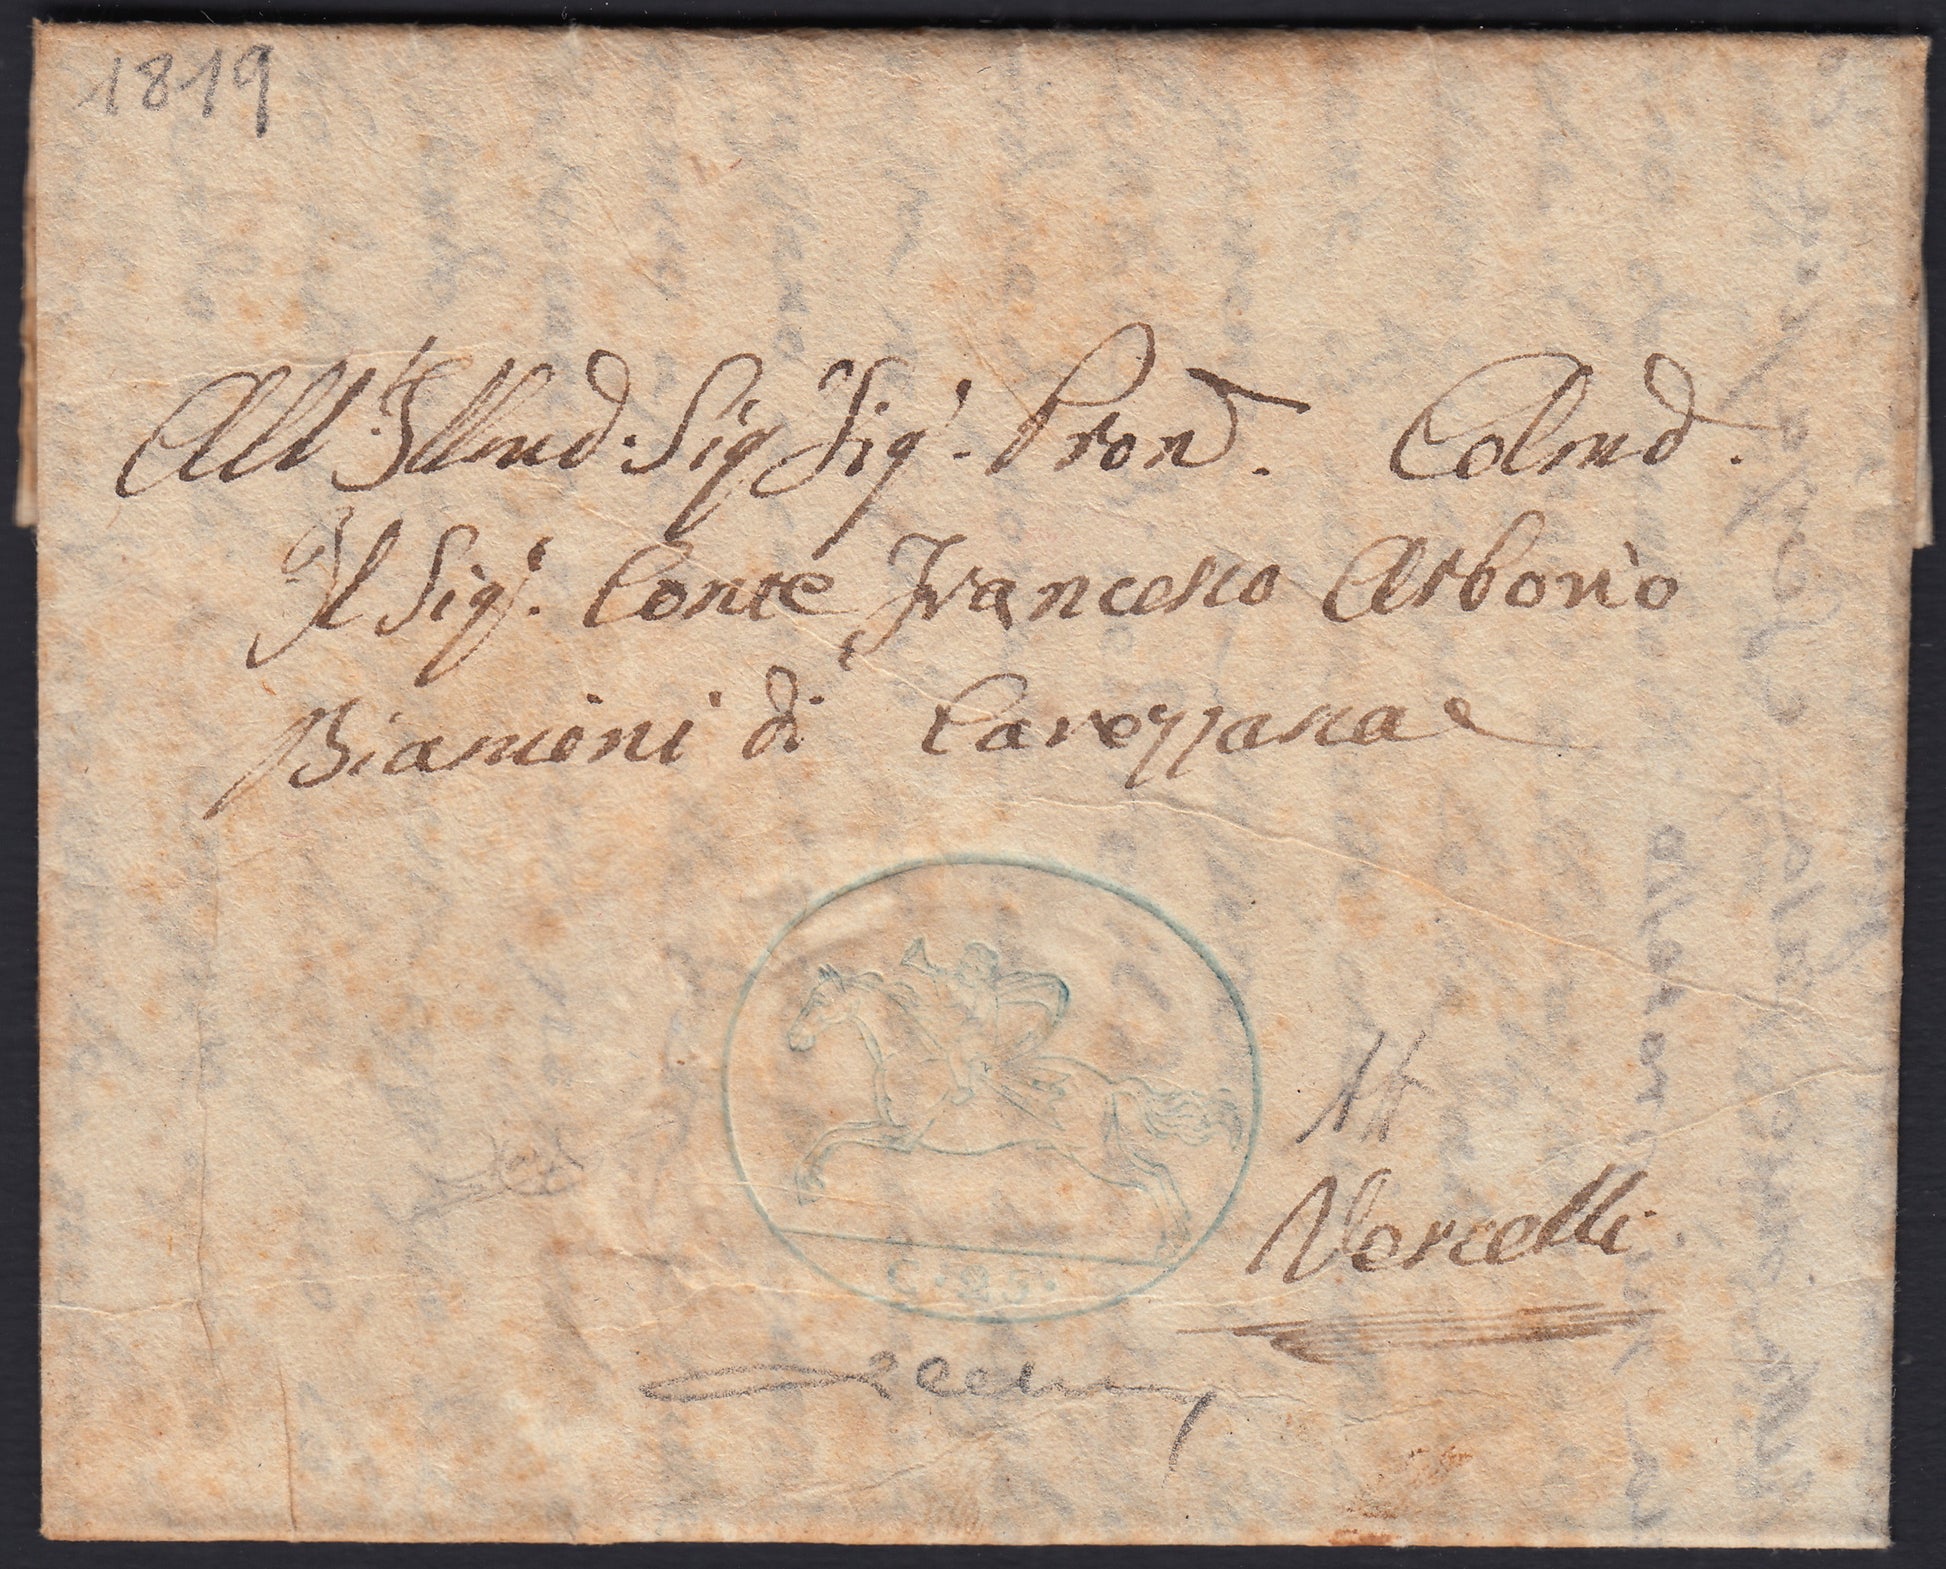 1819
All' Illmo. Sig Sig.r Pron. Colmo.
Il Sig.r Conte Francesco Arborio
Biamini di Carezzana
Vercelli
C. 25.